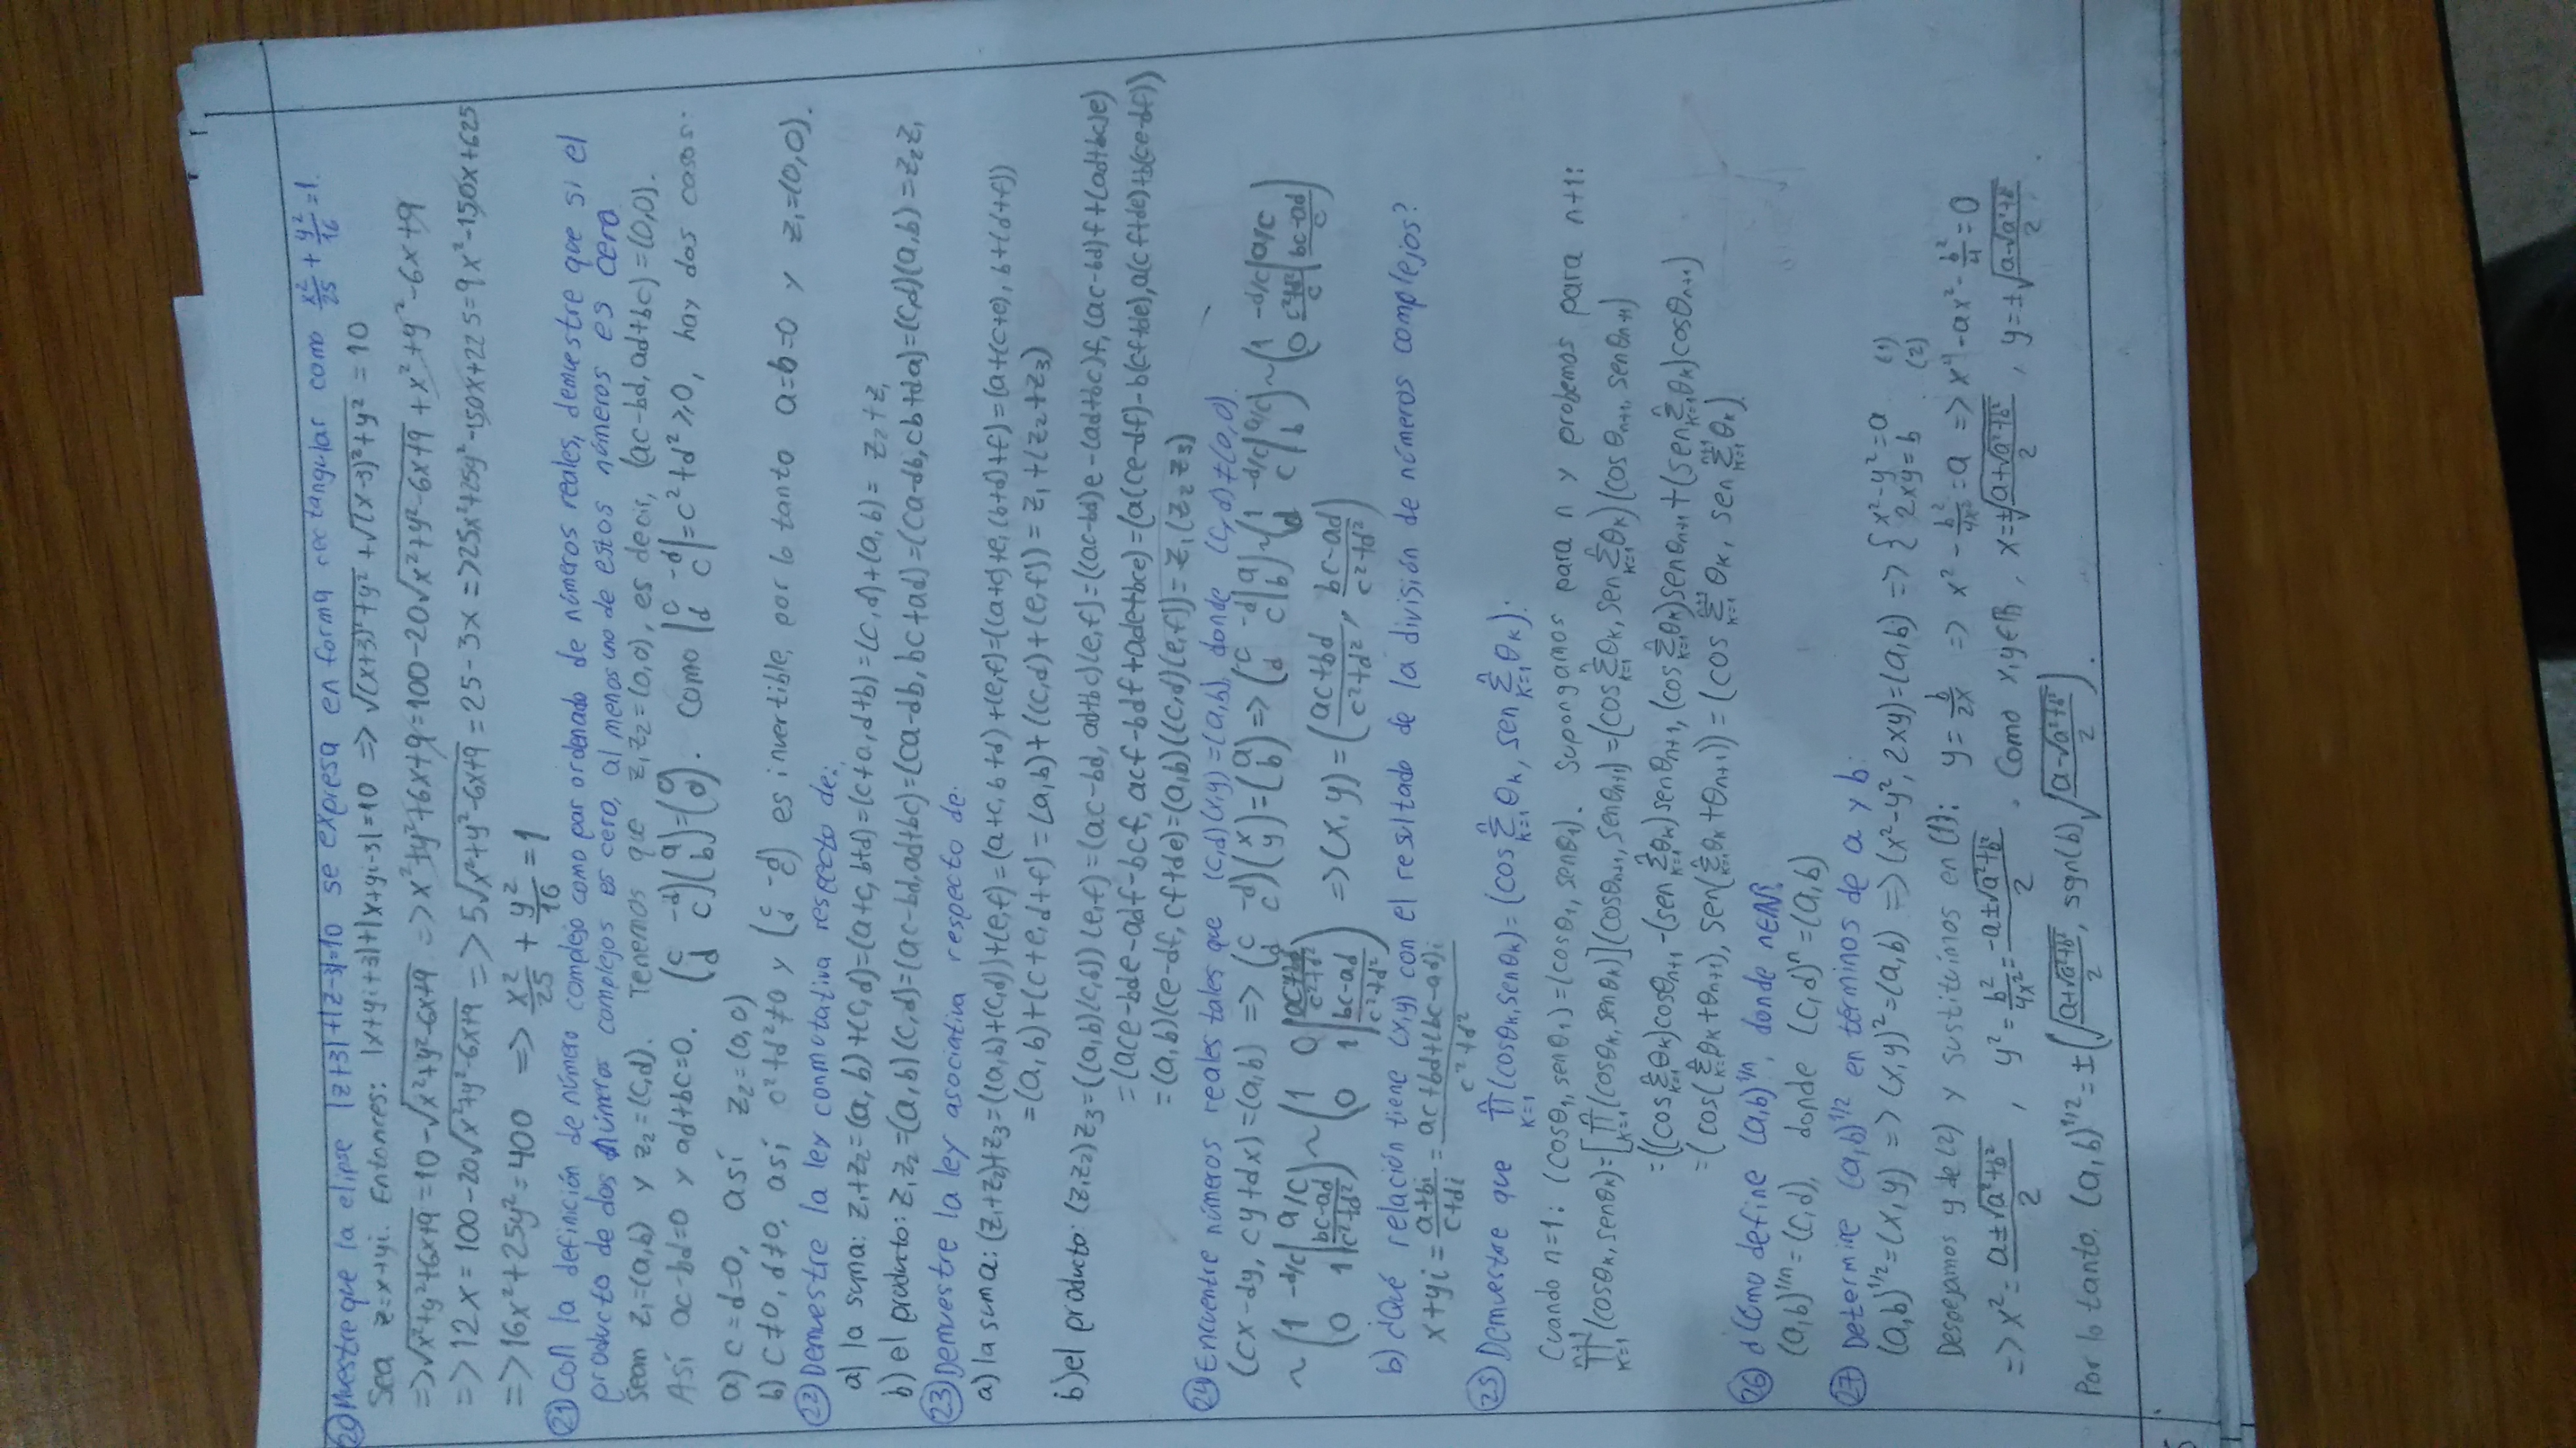 20) Muestre que la elipse |z+3|+|z-3|=10 se expresa en forma rectangular como x²/25 + y²/16 = 1.
Sea z=x+yi. Entonces: |x+yi+3|+|x+yi-3|=10 => √((x+3)²+y²) + √((x-3)²+y²) = 10
=> √(x²+y²+6x+9) = 10 - √(x²+y²-6x+9) => x²+y²+6x+9 = 100-20√(x²+y²-6x+9) + x²+y²-6x+9
=> 12x = 100-20√(x²+y²-6x+9) => 5√(x²+y²-6x+9) = 25-3x => 25x²+25y²-150x+225 = 9x²-150x+625
=> 16x²+25y²=400 => x²/25 + y²/16 = 1
21) Con la definición de número complejo como par ordenado de números reales, demuestre que si el
producto de dos números complejos es cero, al menos uno de estos números es cero
Sean z₁=(a,b) y z₂=(c,d). Tenemos que z₁z₂=(0,0), es decir, (ac-bd, ad+bc)=(0,0).
Así ac-bd=0 y ad+bc=0. (c -d; d c)(a; b)=(0; 0). Como |c -d; d c|=c²+d²≥0, hay dos casos:
a) c=d=0, así z₂=(0,0)
b) c≠0, d≠0, así c²+d²≠0 y (c -d; d c) es invertible, por lo tanto a=b=0 y z₁=(0,0).
22) Demuestre la ley conmutativa respecto de:
a) la suma: z₁+z₂=(a,b)+(c,d)=(a+c, b+d)=(c+a, d+b)=(c,d)+(a,b)= z₂+z₁
b) el producto: z₁z₂=(a,b)(c,d)=(ac-bd, ad+bc)=(ca-db, bc+ad)=(ca-db, cb+da)=(c,d)(a,b)=z₂z₁
23) Demuestre la ley asociativa respecto de:
a) la suma: (z₁+z₂)+z₃=((a,b)+(c,d))+(e,f)=(a+c, b+d)+(e,f)=((a+c)+e, (b+d)+f)=(a+(c+e), b+(d+f))
=(a,b)+(c+e, d+f)=(a,b)+((c,d)+(e,f))= z₁+(z₂+z₃)
b) el producto: (z₁z₂)z₃=((a,b)(c,d))(e,f)=(ac-bd, ad+bc)(e,f)=((ac-bd)e-(ad+bc)f, (ac-bd)f+(ad+bc)e)
=(ace-bde-adf-bcf, acf-bdf+ade+bce)=(a(ce-df)-b(cf+de), a(cf+de)+b(ce-df))
=(a,b)(ce-df, cf+de)=(a,b)((c,d)(e,f))= z₁(z₂z₃)
24) Encuentre números reales tales que (c,d)(x,y)=(a,b), donde (c,d)≠(0,0)
(cx-dy, cy+dx)=(a,b) => (c -d; d c)(x; y)=(a; b) => (c -d | a; d c | b) ~ (1 -d/c | a/c; d c | b) ~ (1 -d/c | a/c; 0 (c²+d²)/c | (bc-ad)/c)
~ (1 -d/c | a/c; 0 1 | (bc-ad)/(c²+d²)) ~ (1 0 | (ac+bd)/(c²+d²); 0 1 | (bc-ad)/(c²+d²)) => (x,y) = ((ac+bd)/(c²+d²), (bc-ad)/(c²+d²))
b) ¿Qué relación tiene (x,y) con el resultado de la división de números complejos?
x+yi = (a+bi)/(c+di) = (ac+bd+(bc-ad)i)/(c²+d²)
25) Demuestre que ∏ₖ₌₁ⁿ(cosθₖ, senθₖ)=(cos ∑ₖ₌₁ⁿ θₖ, sen ∑ₖ₌₁ⁿ θₖ):
Cuando n=1: (cosθ₁, senθ₁)=(cosθ₁, senθ₁). Supongamos para n y probemos para n+1:
∏ₖ₌₁ⁿ⁺¹(cosθₖ, senθₖ)=[∏ₖ₌₁ⁿ(cosθₖ, senθₖ)](cosθₙ₊₁, senθₙ₊₁)=(cos ∑ₖ₌₁ⁿ θₖ, sen ∑ₖ₌₁ⁿ θₖ)(cosθₙ₊₁, senθₙ₊₁)
=((cos ∑ₖ₌₁ⁿ θₖ)cosθₙ₊₁-(sen ∑ₖ₌₁ⁿ θₖ)senθₙ₊₁, (cos ∑ₖ₌₁ⁿ θₖ)senθₙ₊₁+(sen ∑ₖ₌₁ⁿ θₖ)cosθₙ₊₁)
=(cos(∑ₖ₌₁ⁿ θₖ+θₙ₊₁), sen(∑ₖ₌₁ⁿ θₖ+θₙ₊₁))=(cos ∑ₖ₌₁ⁿ⁺¹ θₖ, sen ∑ₖ₌₁ⁿ⁺¹ θₖ).
26) ¿Cómo define (a,b)^1/n, donde n∈ℕ?
(a,b)^1/n=(c,d), donde (c,d)ⁿ=(a,b)
27) Determine (a,b)^1/2 en términos de a y b:
(a,b)^1/2=(x,y) => (x,y)²=(a,b) => (x²-y², 2xy)=(a,b) => { x²-y²=a (1)
2xy=b (2)
Despejamos y de (2) y sustituimos en (1): y = b/2x => x² - b²/4x² = a => x⁴-ax²-b²/4=0
=> x² = (a±√(a²+b²))/2, y² = b²/4x² = (-a±√(a²+b²))/2. Como x,y∈ℝ, x=±√((a+√(a²+b²))/2), y=±√((a-√(a²+b²))/2).
Por lo tanto, (a,b)^1/2 = ±(√((a+√(a²+b²))/2), sgn(b)√((a-√(a²+b²))/2)).